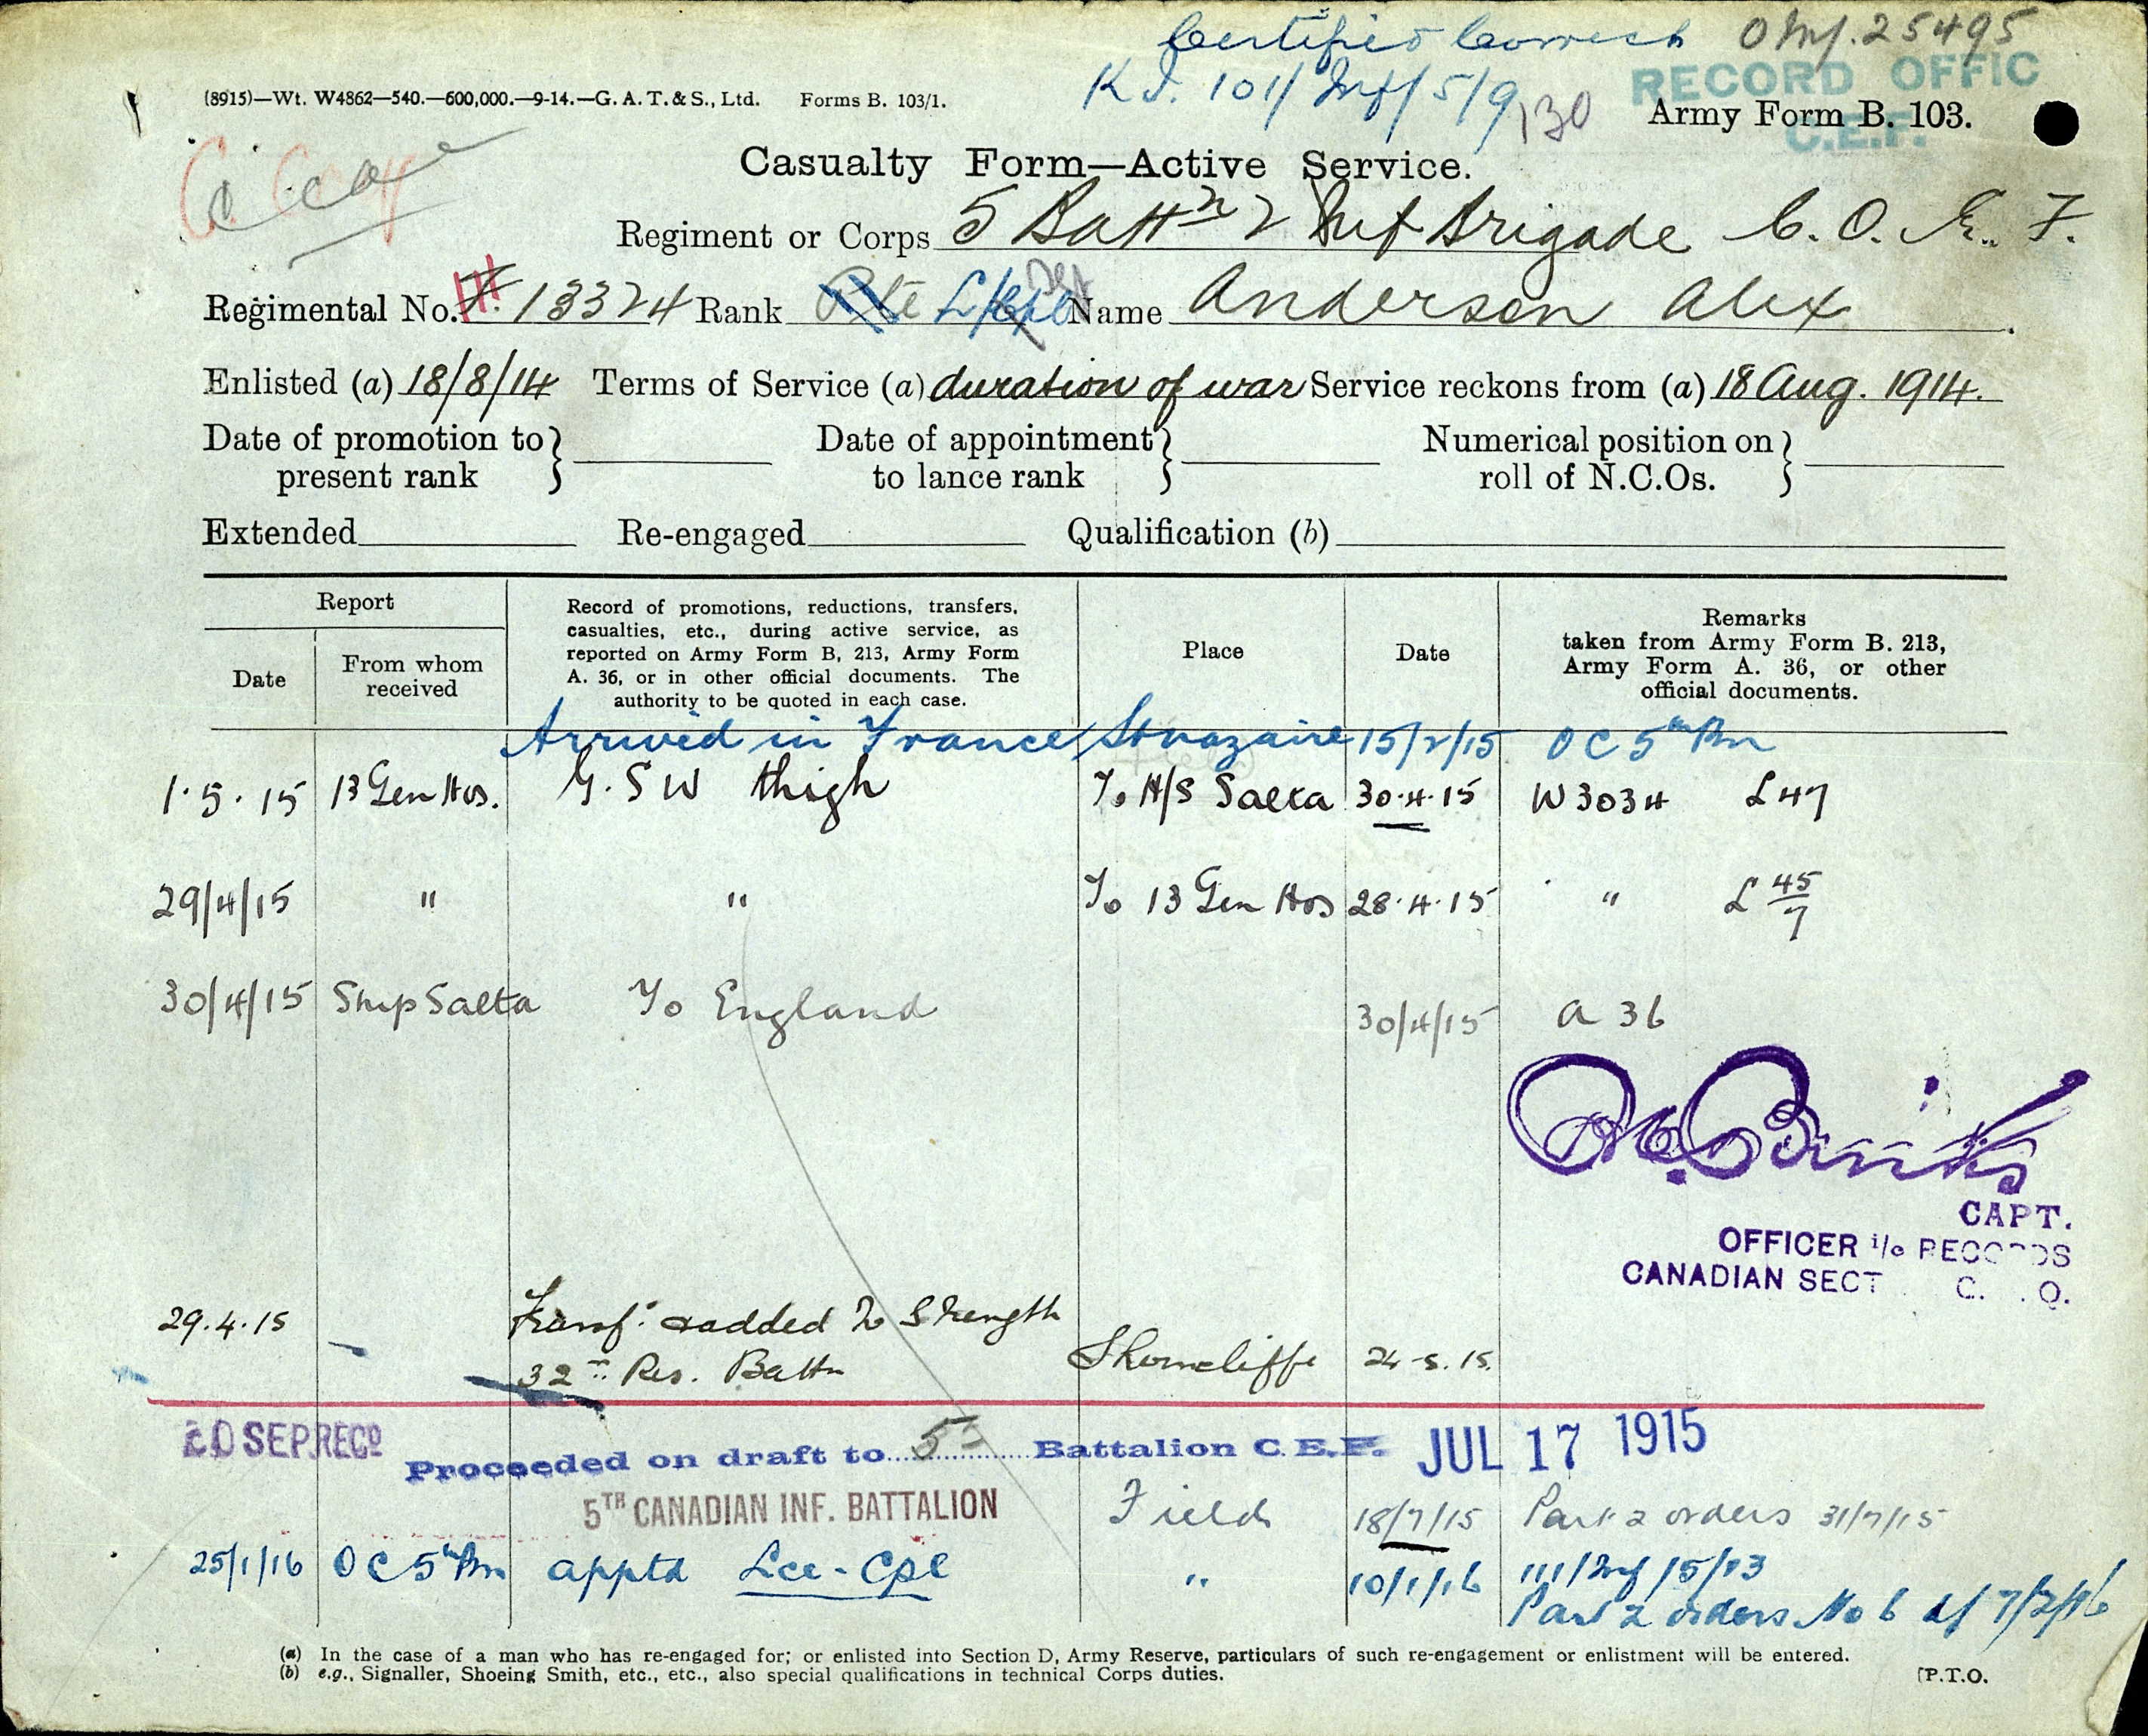 Certified Correct O Inf. 25495
K.I. 101/Inf/5/9 130
RECORD OFFIC
C.E.F.
(8915)—Wt. W4862—540.—600,000.—9-14.—G. A. T. & S., Ltd. Forms B. 103/1.
Army Form B. 103.
Casualty Form—Active Service.
Regiment or Corps 5 Battn 2 Inf Brigade C. O. E. F.
Regimental No. 13324 Rank Pte L/Cpl Name Anderson Alex
Enlisted (a) 18/8/14 Terms of Service (a) duration of war Service reckons from (a) 18 Aug. 1914.
Date of promotion to present rank } Date of appointment to lance rank } Numerical position on roll of N.C.Os. }
Extended Re-engaged Qualification (b)
Report
Date
From whom received
Record of promotions, reductions, transfers, casualties, etc., during active service, as reported on Army Form B, 213, Army Form A. 36, or in other official documents. The authority to be quoted in each case.
Place
Date
Remarks taken from Army Form B. 213, Army Form A. 36, or other official documents.
Arrived in France St nazaire 15/2/15 OC 5th Bn
1.5.15 13 Gen Hos. G.S W thigh To H/S Salta 30.4.15 W 3034 L 47
29/4/15 " " To 13 Gen Hos 28.4.15 " L 45/7
30/4/15 Ship Salta To England 30/4/15 A 36
CAPT.
OFFICER i/o RECORDS
CANADIAN SECT C. . Q.
29.4.15 Transf. & added to Strength
32nd Res. Battn Shorncliffe 24-5.15.
SEP RECD
Proceeded on draft to 5 Battalion C.E.F. JUL 17 1915
5TH CANADIAN INF. BATTALION Field 18/7/15 Part 2 orders 31/7/15
25/1/16 OC 5th Bn apptd Lce-Cpl " 10/1/16 111/Inf 15/13
Part 2 orders No 6 d/ 7/2/16
(a) In the case of a man who has re-engaged for; or enlisted into Section D, Army Reserve, particulars of such re-engagement or enlistment will be entered.
(b) e.g., Signaller, Shoeing Smith, etc., etc., also special qualifications in technical Corps duties.
[P.T.O.